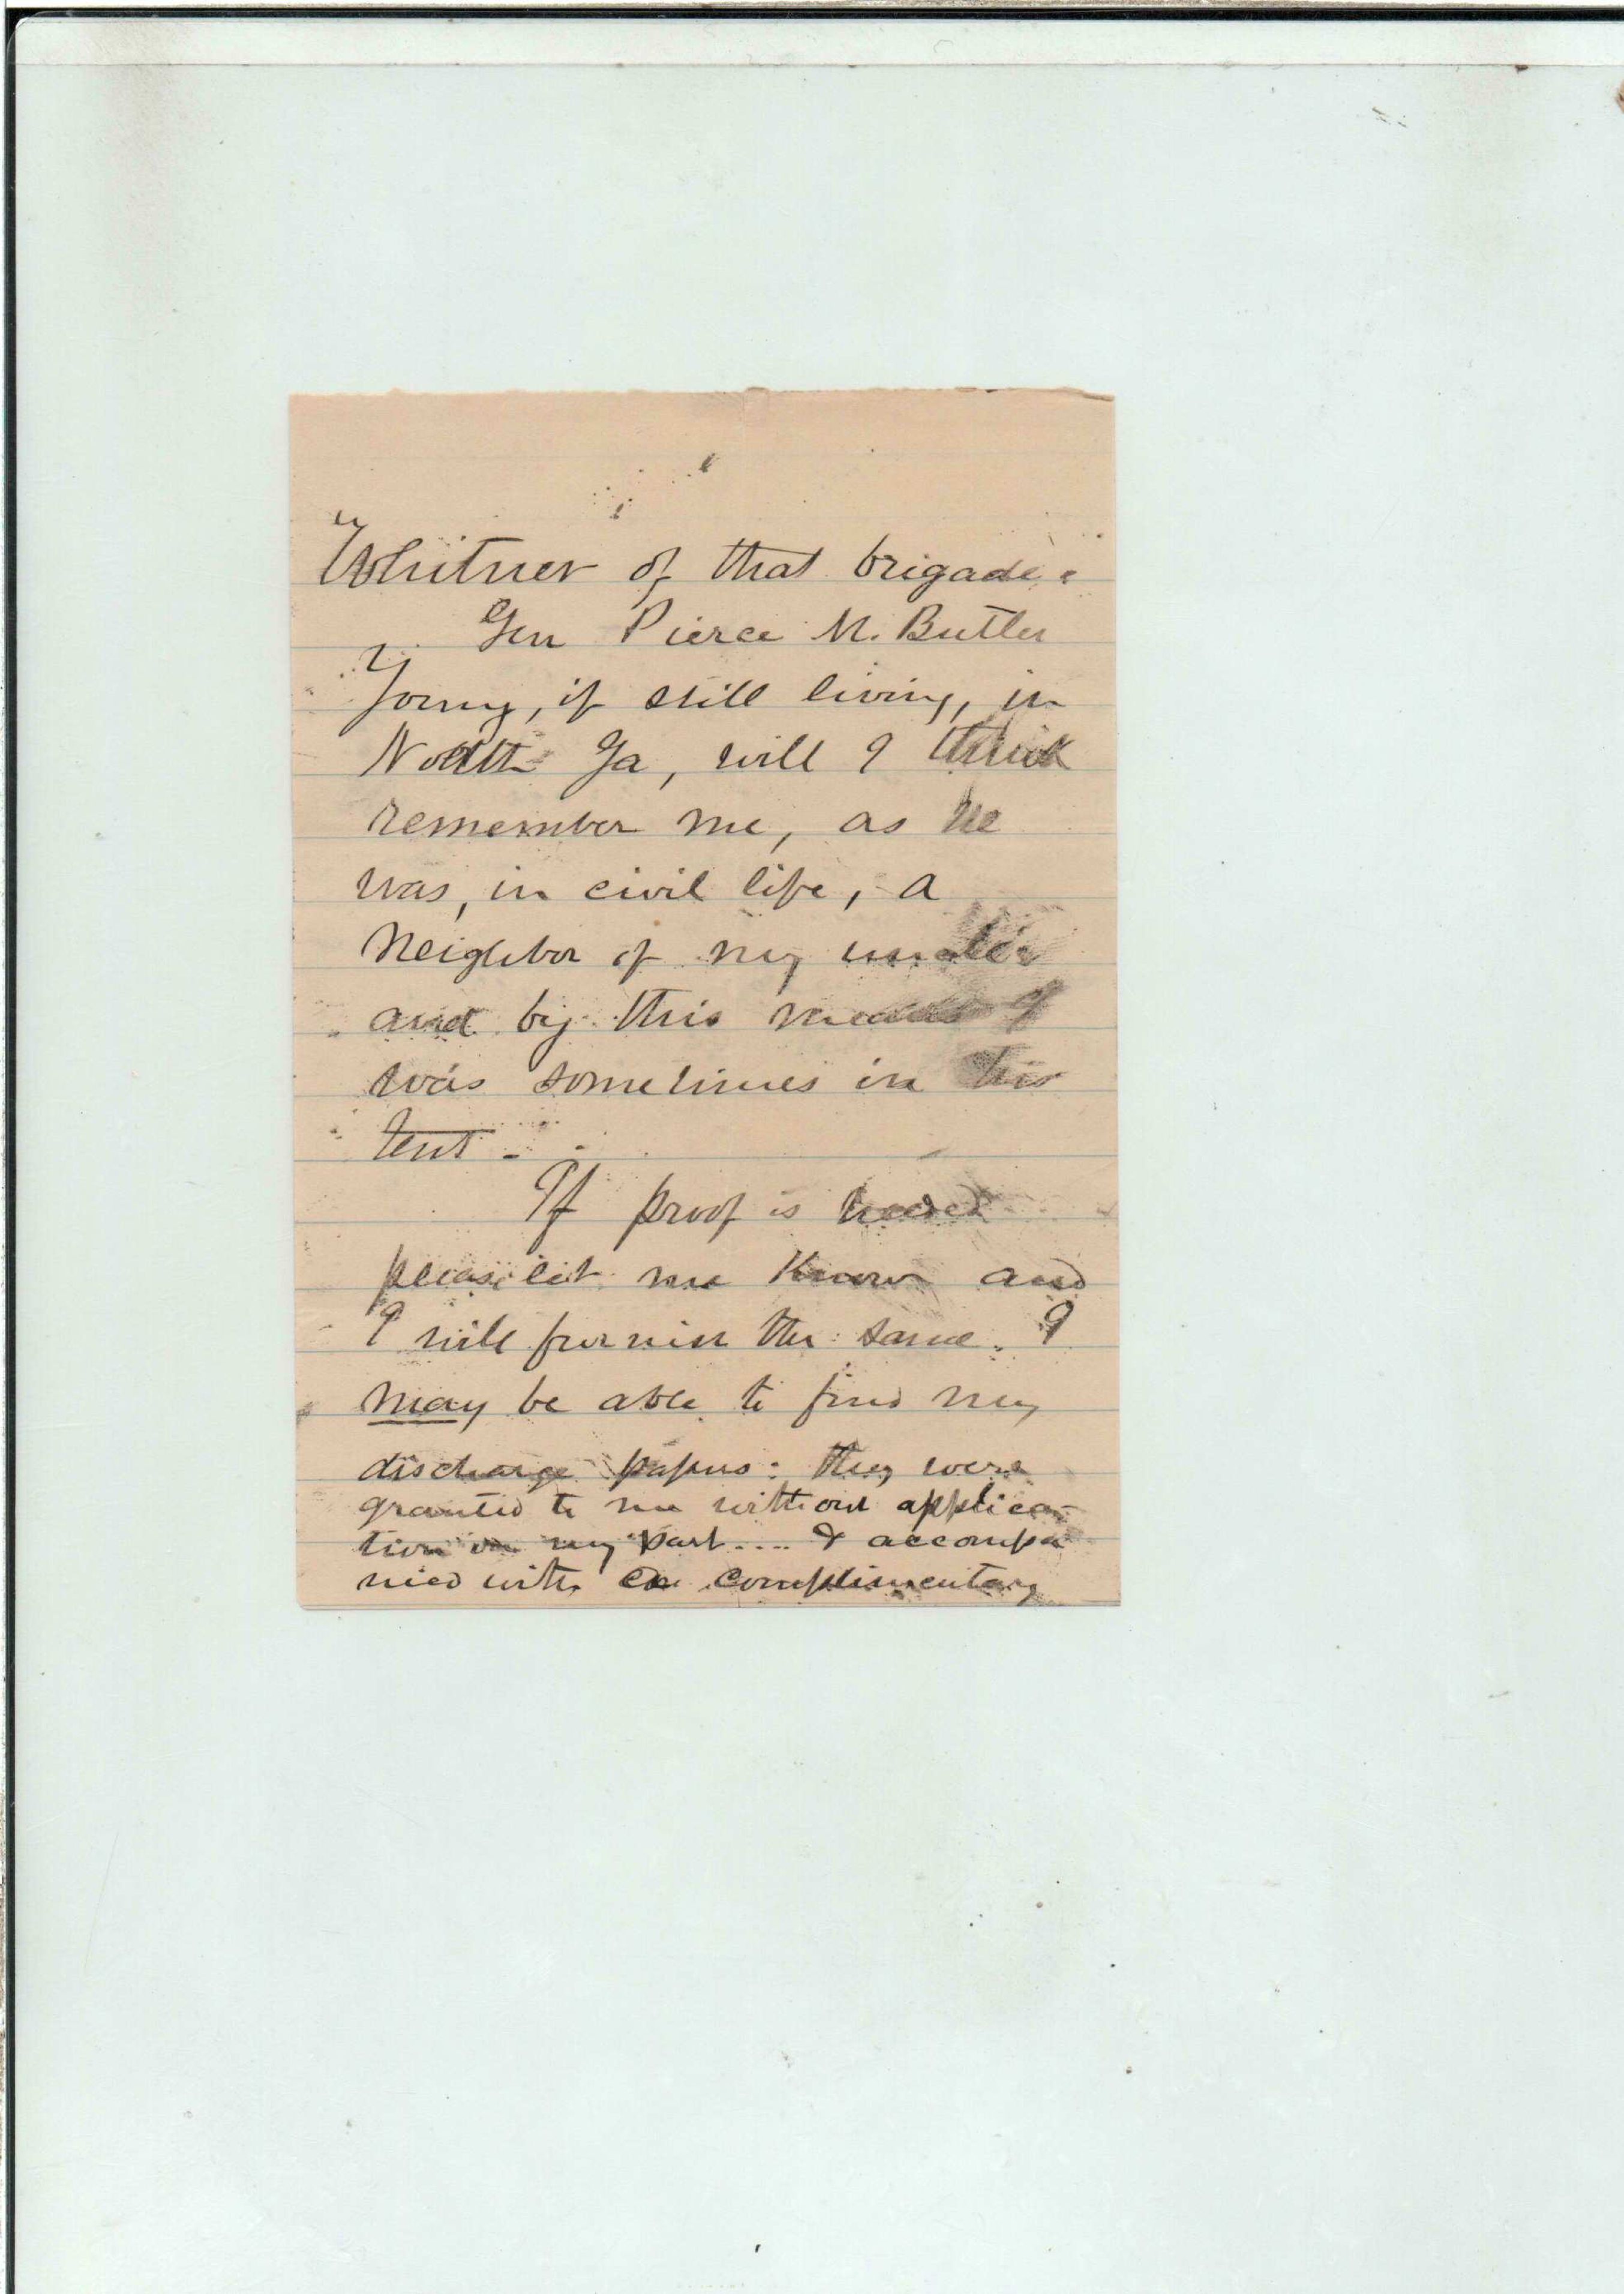 Whitner of that brigade.
Gen Pierce M. Butler
Young, if still living, in
North Ga, will I think
remember me, as he
was, in civil life, a
neighbor of my uncle's
and by this means I
was sometimes in his
tent.
If proof is needed
please let me know and
I will furnish the same. I
may be able to find my
discharge papers: they were
granted to me without applica-
tion on my part.... & accompa
nied with a complimentary